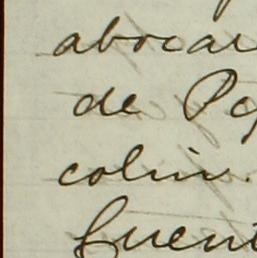 abocar
de Pq
colin.
fuent